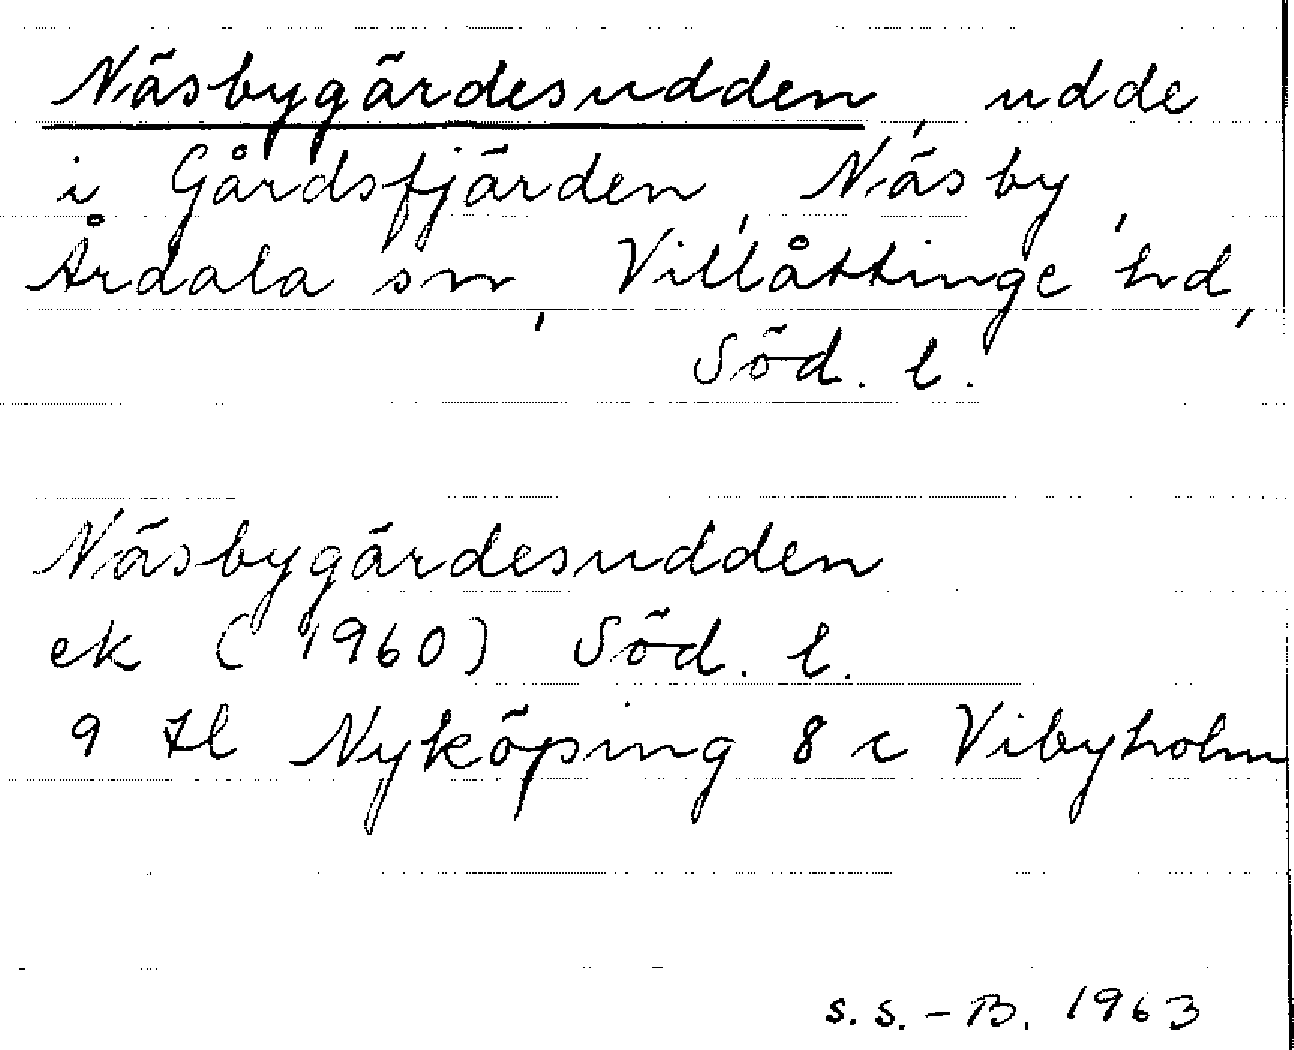 Näsbygärdesudden, udde
i Gårdsfjärden, Näsby,
Årdala sn, Villåttinge hd,
Söd. l.
Näsbygärdesudden
ek (1960) Söd. l.
9 H Nyköping 8 c Vibyholm
S.S.-B. 1963